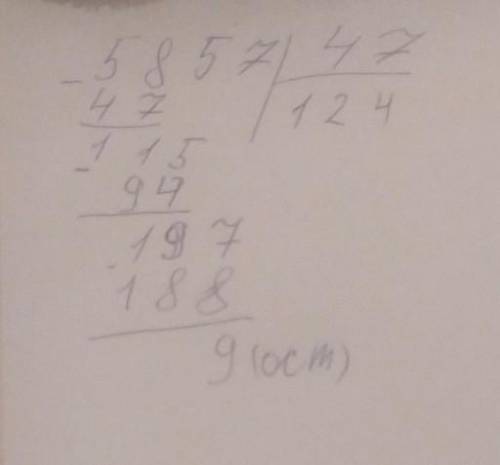 - 5857 | 47
47 | 124
- 115
94
- 197
188
9 (ост)